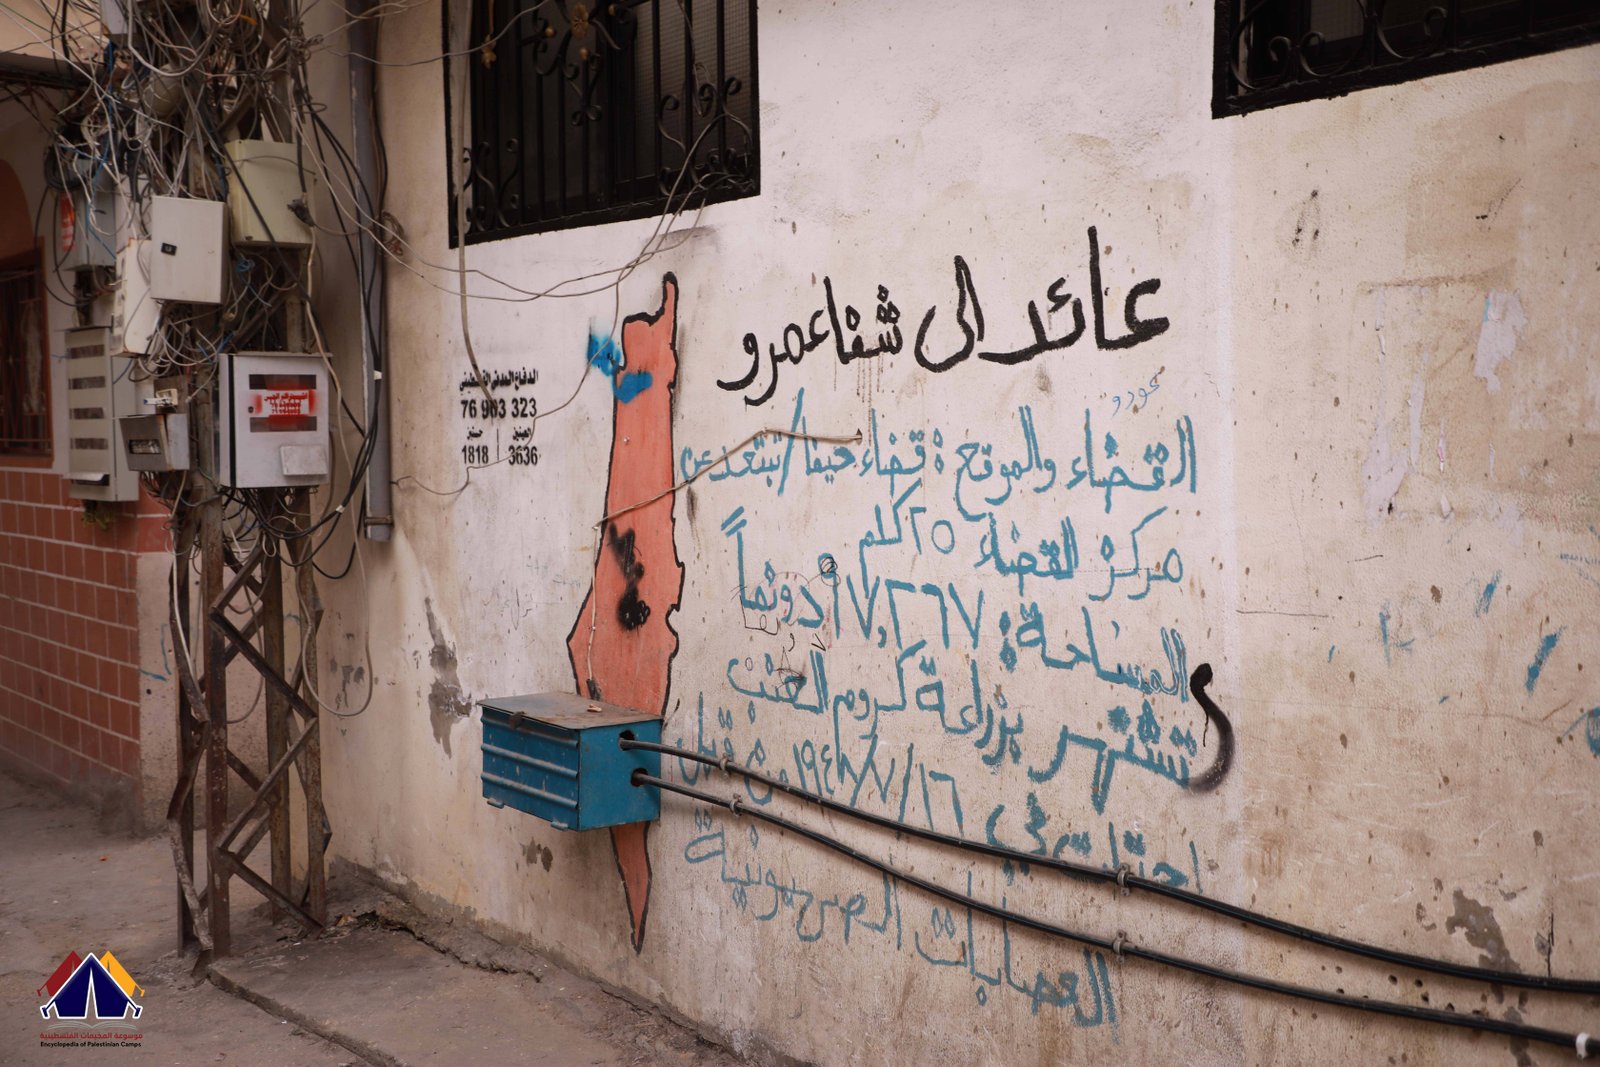 عائد الى شفاعمرو
القضاء والموقع : قضاء حيفا / تبتعد عن
مركز القضاء ٢٥ كلم
المساحة : ١٧,٢٦٧ دونماً
تشتهر بزراعة كروم العنب
احتلت في ١٦/٧/١٩٤٨ من قبل
العصابات الصهيونية
الدفاع المدني الفلسطيني
76 903 323
1818 | 3636
موسوعة المخيمات الفلسطينية
Encyclopedia of Palestinian Camps